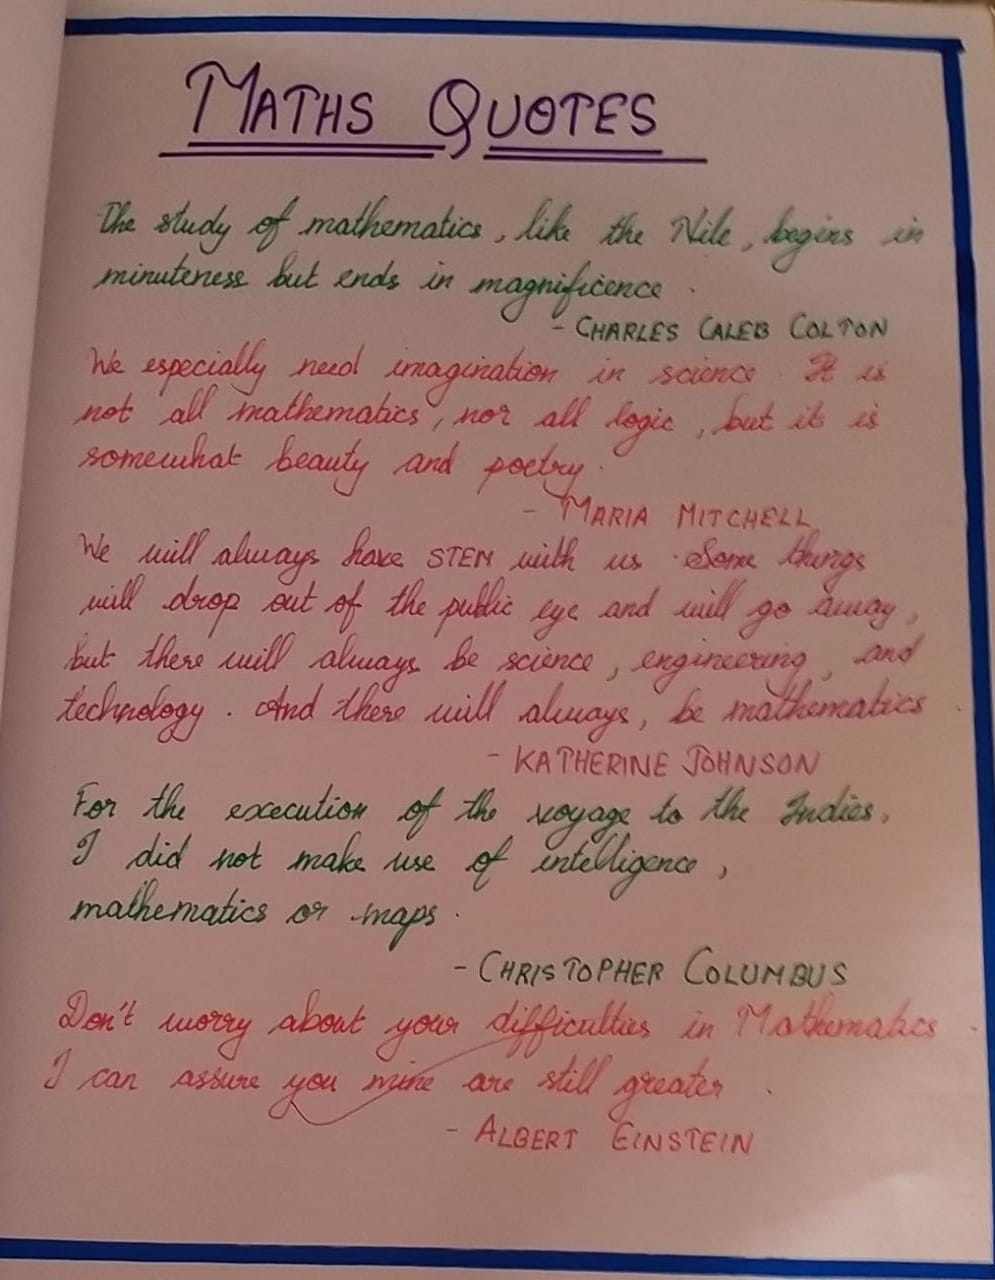 MATHS QUOTES
The study of mathematics, like the Nile, begins in
minuteness but ends in magnificence.
- CHARLES CALEB COLTON
We especially need imagination in science. It is
not all mathematics, nor all logic, but it is
somewhat beauty and poetry.
- MARIA MITCHELL
We will always have STEM with us. Some things
will drop out of the public eye and will go away,
but there will always be science, engineering, and
technology. And there will always, be mathematics.
- KATHERINE JOHNSON
For the execution of the voyage to the Indies,
I did not make use of intelligence,
mathematics or maps.
- CHRISTOPHER COLUMBUS
Don't worry about your difficulties in Mathematics.
I can assure you mine are still greater.
- ALBERT EINSTEIN